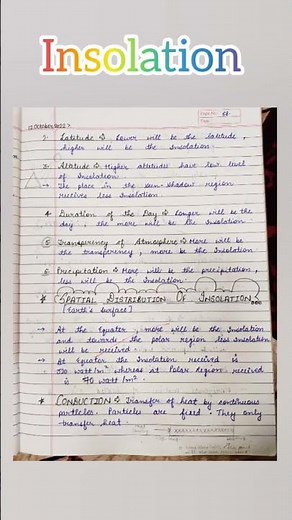 Insolation
12 October, 2022
2. Latitude ⇒ Lower will be the latitude,
higher will be the Insolation.
3. Altitude ⇒ Higher altitudes have low level
of Insolation.
→ The place in the sun-shadow region
receives less Insolation.
4. Duration of the Day ⇒ Longer will be the
day, the more will be the Insolation.
5 Transparency of Atmosphere ⇒ More will be
the transparency, more be the Insolation.
6 Precipitation ⇒ More will be the precipitation,
less will be the Insolation.
* SPATIAL DISTRIBUTION OF INSOLATION
[Earth's surface]
→ At the Equator, more will be the Insolation
and towards the polar region less Insolation
will be received.
→ At Equator the Insolation received is
watt/m² whereas at Polar Region received
is 70 watt/m².
* CONDUCTION ⇒ Transfer of heat by continuous
particles. Particles are fixed. They only
transfer heat.